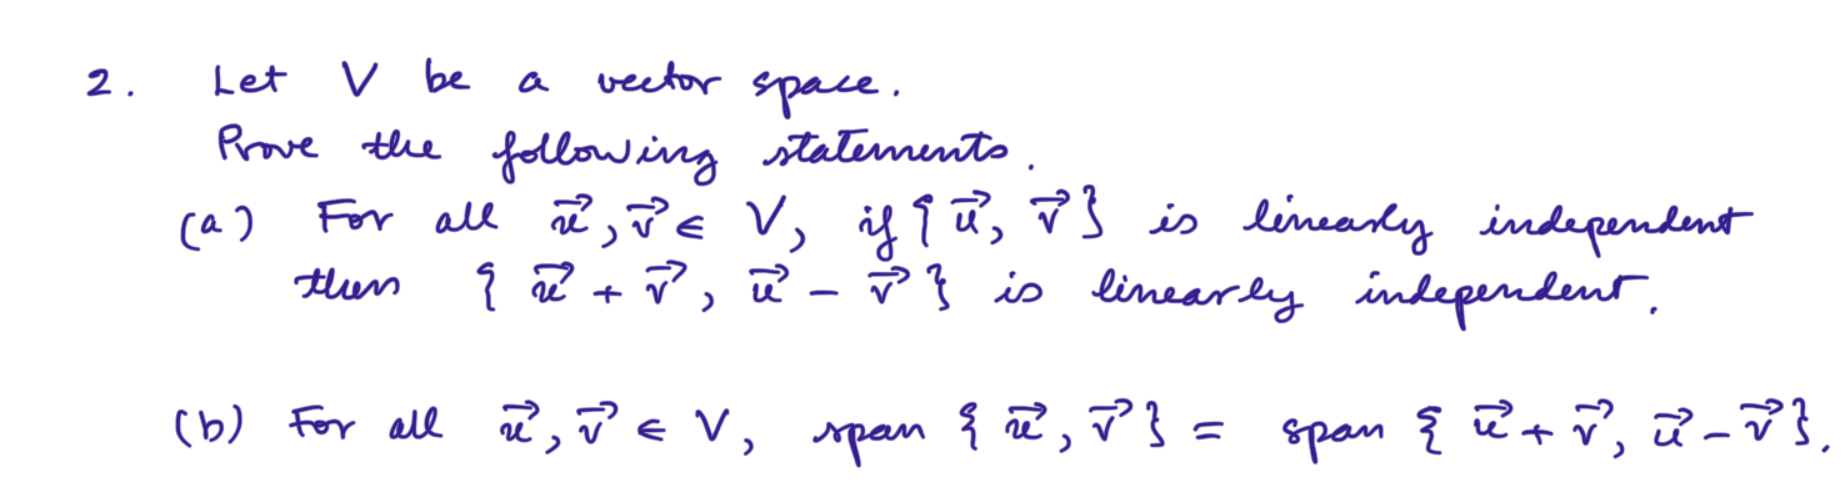 2. Let V be a vector space.
Prove the following statements.
(a) For all u⃗, v⃗ ∈ V, if {u⃗, v⃗} is linearly independent
then {u⃗ + v⃗, u⃗ − v⃗} is linearly independent.
(b) For all u⃗, v⃗ ∈ V, span {u⃗, v⃗} = span {u⃗ + v⃗, u⃗ − v⃗}.